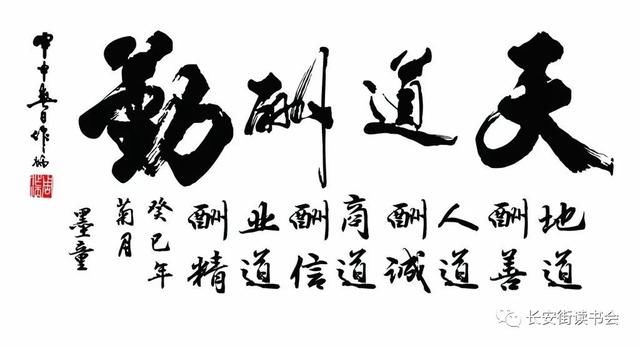 天道酬勤
甲申春日
地道
酬善
人道
酬誠
商道
酬信
业道
酬精
癸巳年
菊月
墨童
长安街读书会